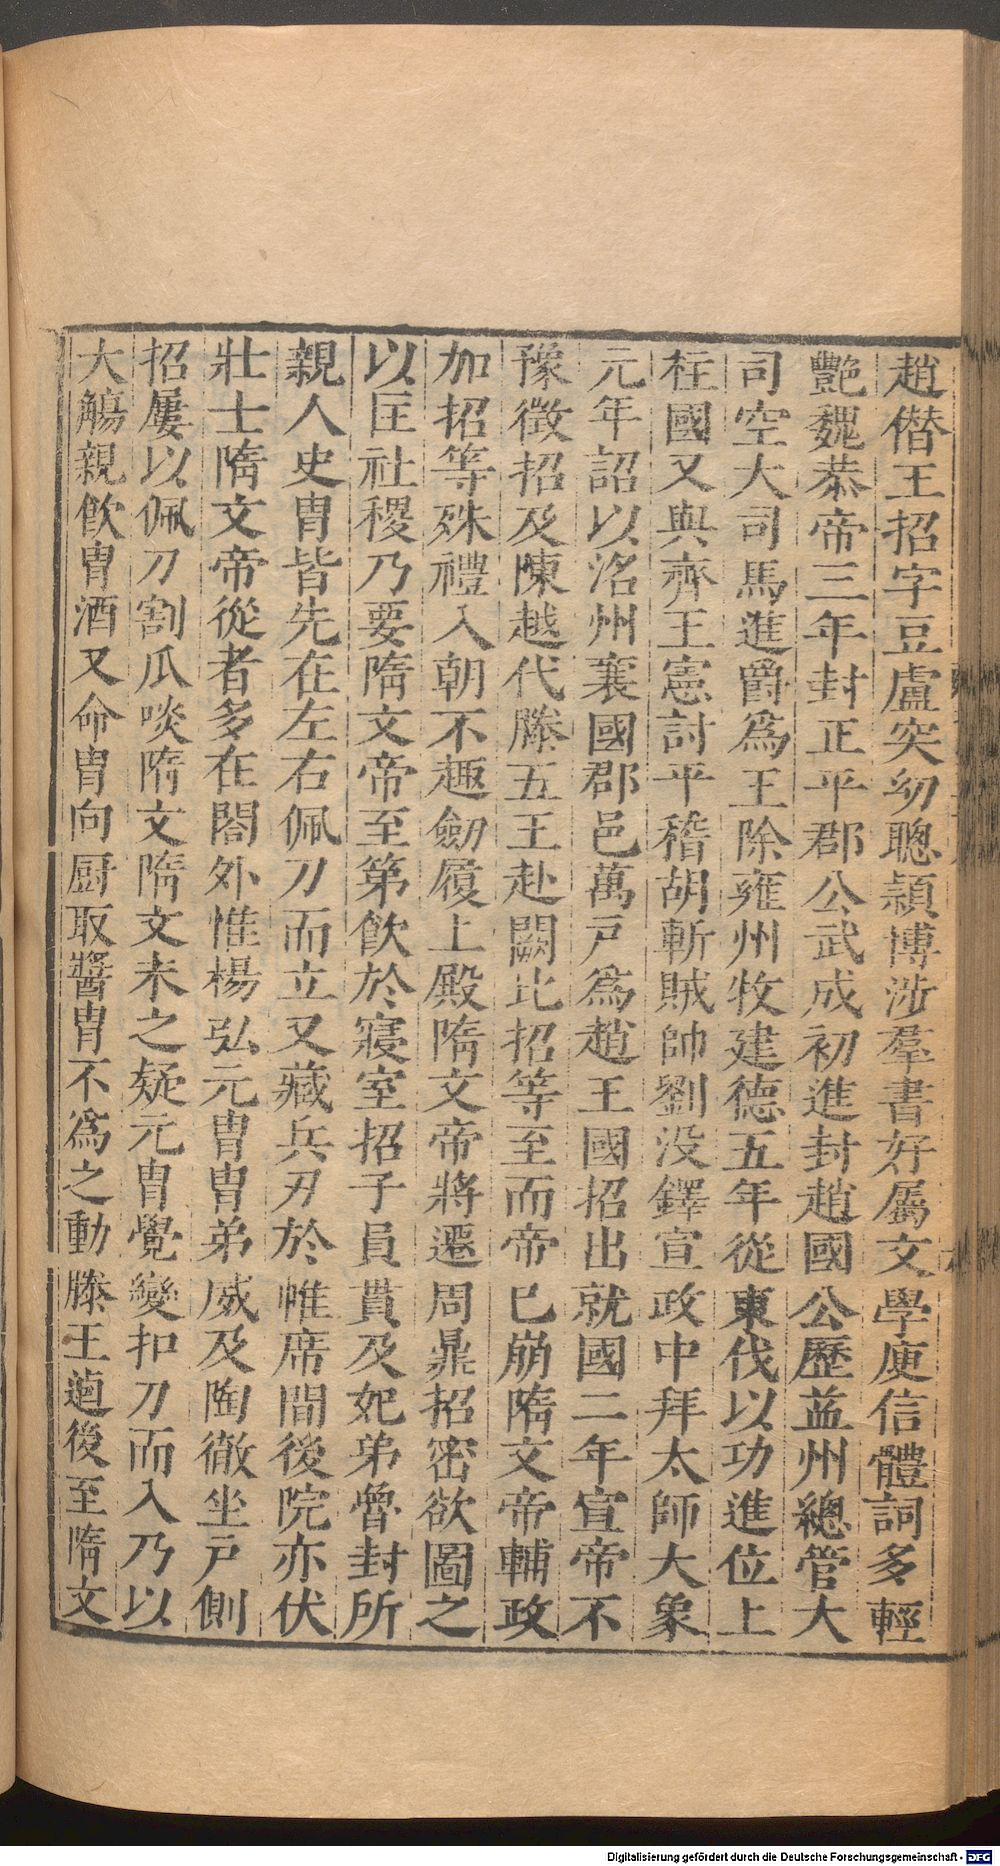 趙僭王招字豆盧突幼聰頴博涉羣書好屬文學庾信體詞多輕
艷魏恭帝三年封正平郡公武成初進封趙國公歷益州總管大
司空大司馬進爵爲王除雍州牧建德五年從東伐以功進位上
柱國又與齊王憲討平稽胡斬賊帥劉没鐸宣政中拜太師大象
元年詔以洺州襄國郡邑萬戸爲趙王國招出就國二年宣帝不
豫徵招及陳越代滕五王赴闕比招等至而帝已崩隋文帝輔政
加招等殊禮入朝不趨劒履上殿隋文帝將遷周鼎招密欲圖之
以匡社稷乃要隋文帝至第飲於寢室招子員貫及妃弟魯封所
親人史胄皆先在左右佩刀而立又藏兵刃於帷席間後院亦伏
壯士隋文帝從者多在閤外惟楊弘元胄胄弟威及陶徹坐戸側
招屢以佩刀割瓜啖隋文隋文未之疑元胄覺變扣刀而入乃以
大觴親飲胄酒又命胄向厨取醬胄不爲之動滕王逌後至隋文
Digitalisierung gefördert durch die Deutsche Forschungsgemeinschaft - DFG